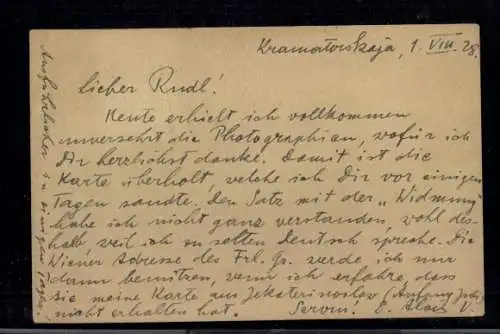 Kramatorskaja, 1. VIII. 28.
Lieber Rudl!
Heute erhielt ich vollkommen
unversehrt die Photographien, wofür ich
Dir herzlichst danke. Damit ist die
Karte überholt, welche ich Dir vor einigen
Tagen sandte. Den Satz mit der „Widmung“
habe ich nicht ganz verstanden, wohl des-
halb weil ich so selten Deutsch spreche. Die
Wiener Adresse des Frl. Gr. werde ich nur
dann benützen, wenn ich erfahre, dass
sie meine Karte aus Jekaterinoslaw (Anfang Juli)
nicht erhalten hat. Servus. E.
Ausführlicher in einigen Tagen.